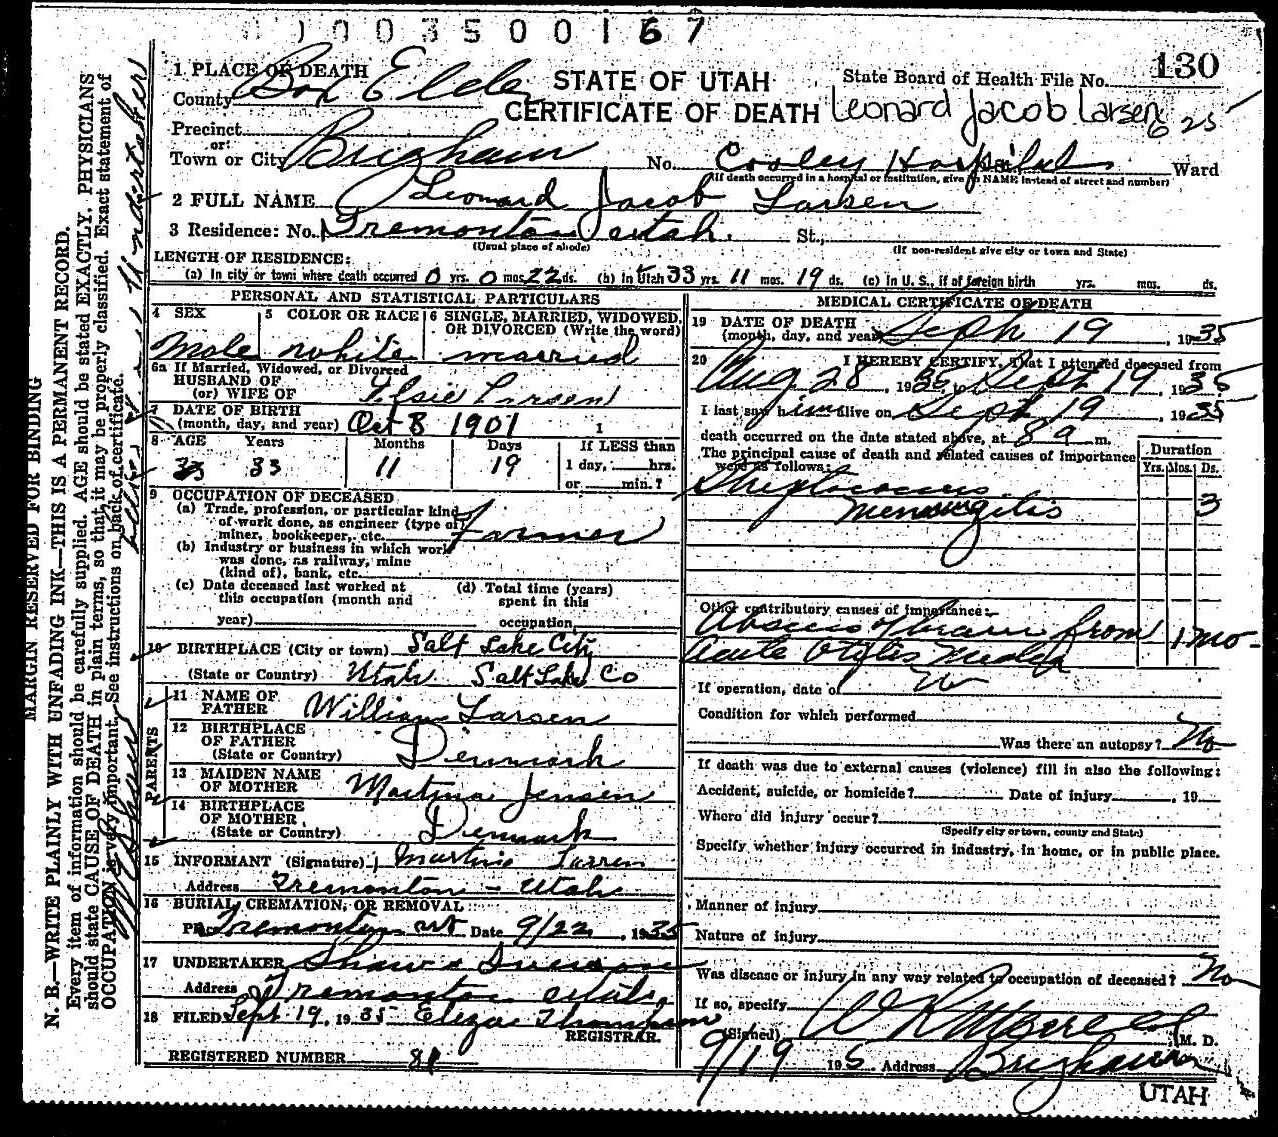 0003500167
130
1 PLACE OF DEATH
County Box Elder
STATE OF UTAH
CERTIFICATE OF DEATH
State Board of Health File No.
Leonard Jacob Larsen
625
Precinct
or
Town or City Brigham No. Cooley Hospital Ward
(If death occurred in a hospital or institution, give its NAME instead of street and number)
2 FULL NAME Leonard Jacob Larsen
3 Residence: No. Tremonton Utah. St.,
(Usual place of abode) (If non-resident give city or town and State)
LENGTH OF RESIDENCE:
(a) In city or town where death occurred 0 yrs. 0 mos. 22 ds. (b) in Utah 33 yrs. 11 mos. 19 ds. (c) in U. S., if of foreign birth yrs. mos. ds.
PERSONAL AND STATISTICAL PARTICULARS
4 SEX 5 COLOR OR RACE 6 SINGLE, MARRIED, WIDOWED, OR DIVORCED (Write the word)
Male white married
6a If Married, Widowed, or Divorced
HUSBAND OF
(or) WIFE OF Elsie Larsen
7 DATE OF BIRTH
(month, day, and year) Oct 8 1901
8 AGE Years Months Days If LESS than
33 11 19 1 day, hrs.
or min.?
9 OCCUPATION OF DECEASED
(a) Trade, profession, or particular kind
of work done, as engineer (type of
miner, bookkeeper, etc. Farmer
(b) Industry or business in which work
was done, as railway, mine
(kind of), bank, etc.
(c) Date deceased last worked at
this occupation (month and
year)
(d) Total time (years)
spent in this
occupation
10 BIRTHPLACE (City or town) Salt Lake City
(State or Country) Utah. Salt Lake Co
PARENTS
11 NAME OF
FATHER William Larsen
12 BIRTHPLACE
OF FATHER
(State or Country) Denmark
13 MAIDEN NAME
OF MOTHER Martina Jensen
14 BIRTHPLACE
OF MOTHER
(State or Country) Denmark
15 INFORMANT (Signature) Martine Larsen
Address Tremonton - Utah
16 BURIAL, CREMATION, OR REMOVAL:
Tremonton Ut Date 9/22, 1935
17 UNDERTAKER Shaw & Iverson
Address Tremonton Utah.
18 FILED Sept 19, 1935 Eliza Thompson
REGISTRAR.
REGISTERED NUMBER 81
MEDICAL CERTIFICATE OF DEATH
19 DATE OF DEATH
(month, day, and year) Sept 19, 1935
20 I HEREBY CERTIFY, That I attended deceased from
Aug 28, 1935 to Sept 19, 1935
I last saw him alive on Sept 19 1935
death occurred on the date stated above, at 8 a m.
The principal cause of death and related causes of importance
were as follows:
Duration
Yrs. Mos. Ds.
Streptococcus
Meningitis 3
Other contributory causes of importance:
Abscess of brain from 1 mo -
acute Otitis Media
If operation, date of No
Condition for which performed
Was there an autopsy? No
If death was due to external causes (violence) fill in also the following:
Accident, suicide, or homicide? Date of injury , 19
Where did injury occur?
(Specify city or town, county and State)
Specify whether injury occurred in industry, in home, or in public place.
Manner of injury
Nature of injury
Was disease or injury in any way related to occupation of deceased? No
If so, specify
(Signed) M. D.
9/19 195 Address Brigham
UTAH
MARGIN RESERVED FOR BINDING
N. B.—WRITE PLAINLY WITH UNFADING INK—THIS IS A PERMANENT RECORD.
Every item of information should be carefully supplied. AGE should be stated EXACTLY. PHYSICIANS
should state CAUSE OF DEATH in plain terms, so that it may be properly classified. Exact statement of
OCCUPATION is very important. See instructions on back of certificate.